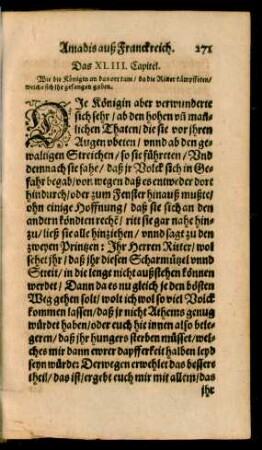 Amadis auß Franckreich. 271
Das XLIII. Capitel.
Wie die Königin an das ort kam / da die Ritter kämpfften /
welche sich ihr gefangen gaben.
DIe Königin aber verwunderte
sich sehr / ab den hohen vñ mañ-
lichen Thaten / die sie vor ihren
Augen vbeten / vnnd ab den ge-
waltigen Streichen / so sie führeten / Vnd
demnach sie sahe / daß jr Volck sich in Ge-
fahr begab / von wegen daß es entweder dort
hindurch / oder zum Fenster hinauß müste /
ohn einige Hoffnung / daß sie sich an den
andern köndten rechē / ritt sie gar nahe hin-
zu / ließ sie alle hinziehen / vnnd sagt zu den
zweyen Printzen : Ihr Herren Ritter / wol
sehet jhr / daß jhr diesen Scharmützel vnnd
Streit / in die lenge nicht außstehen können
werdet / Dann da es nu gleich je den bösten
Weg gehen solt / wolt ich wol so viel Volck
kommen lassen / daß jr nicht Athems genug
würdet haben / oder euch hie innen also bele-
geren / daß jhr hungers sterben müsset / wel-
ches mir dann ewrer dapfferkeit halben leyd
seyn würde: Derwegen erwehlet das bessers
theil / das ist / ergebt euch mir mit allem / das
ihr